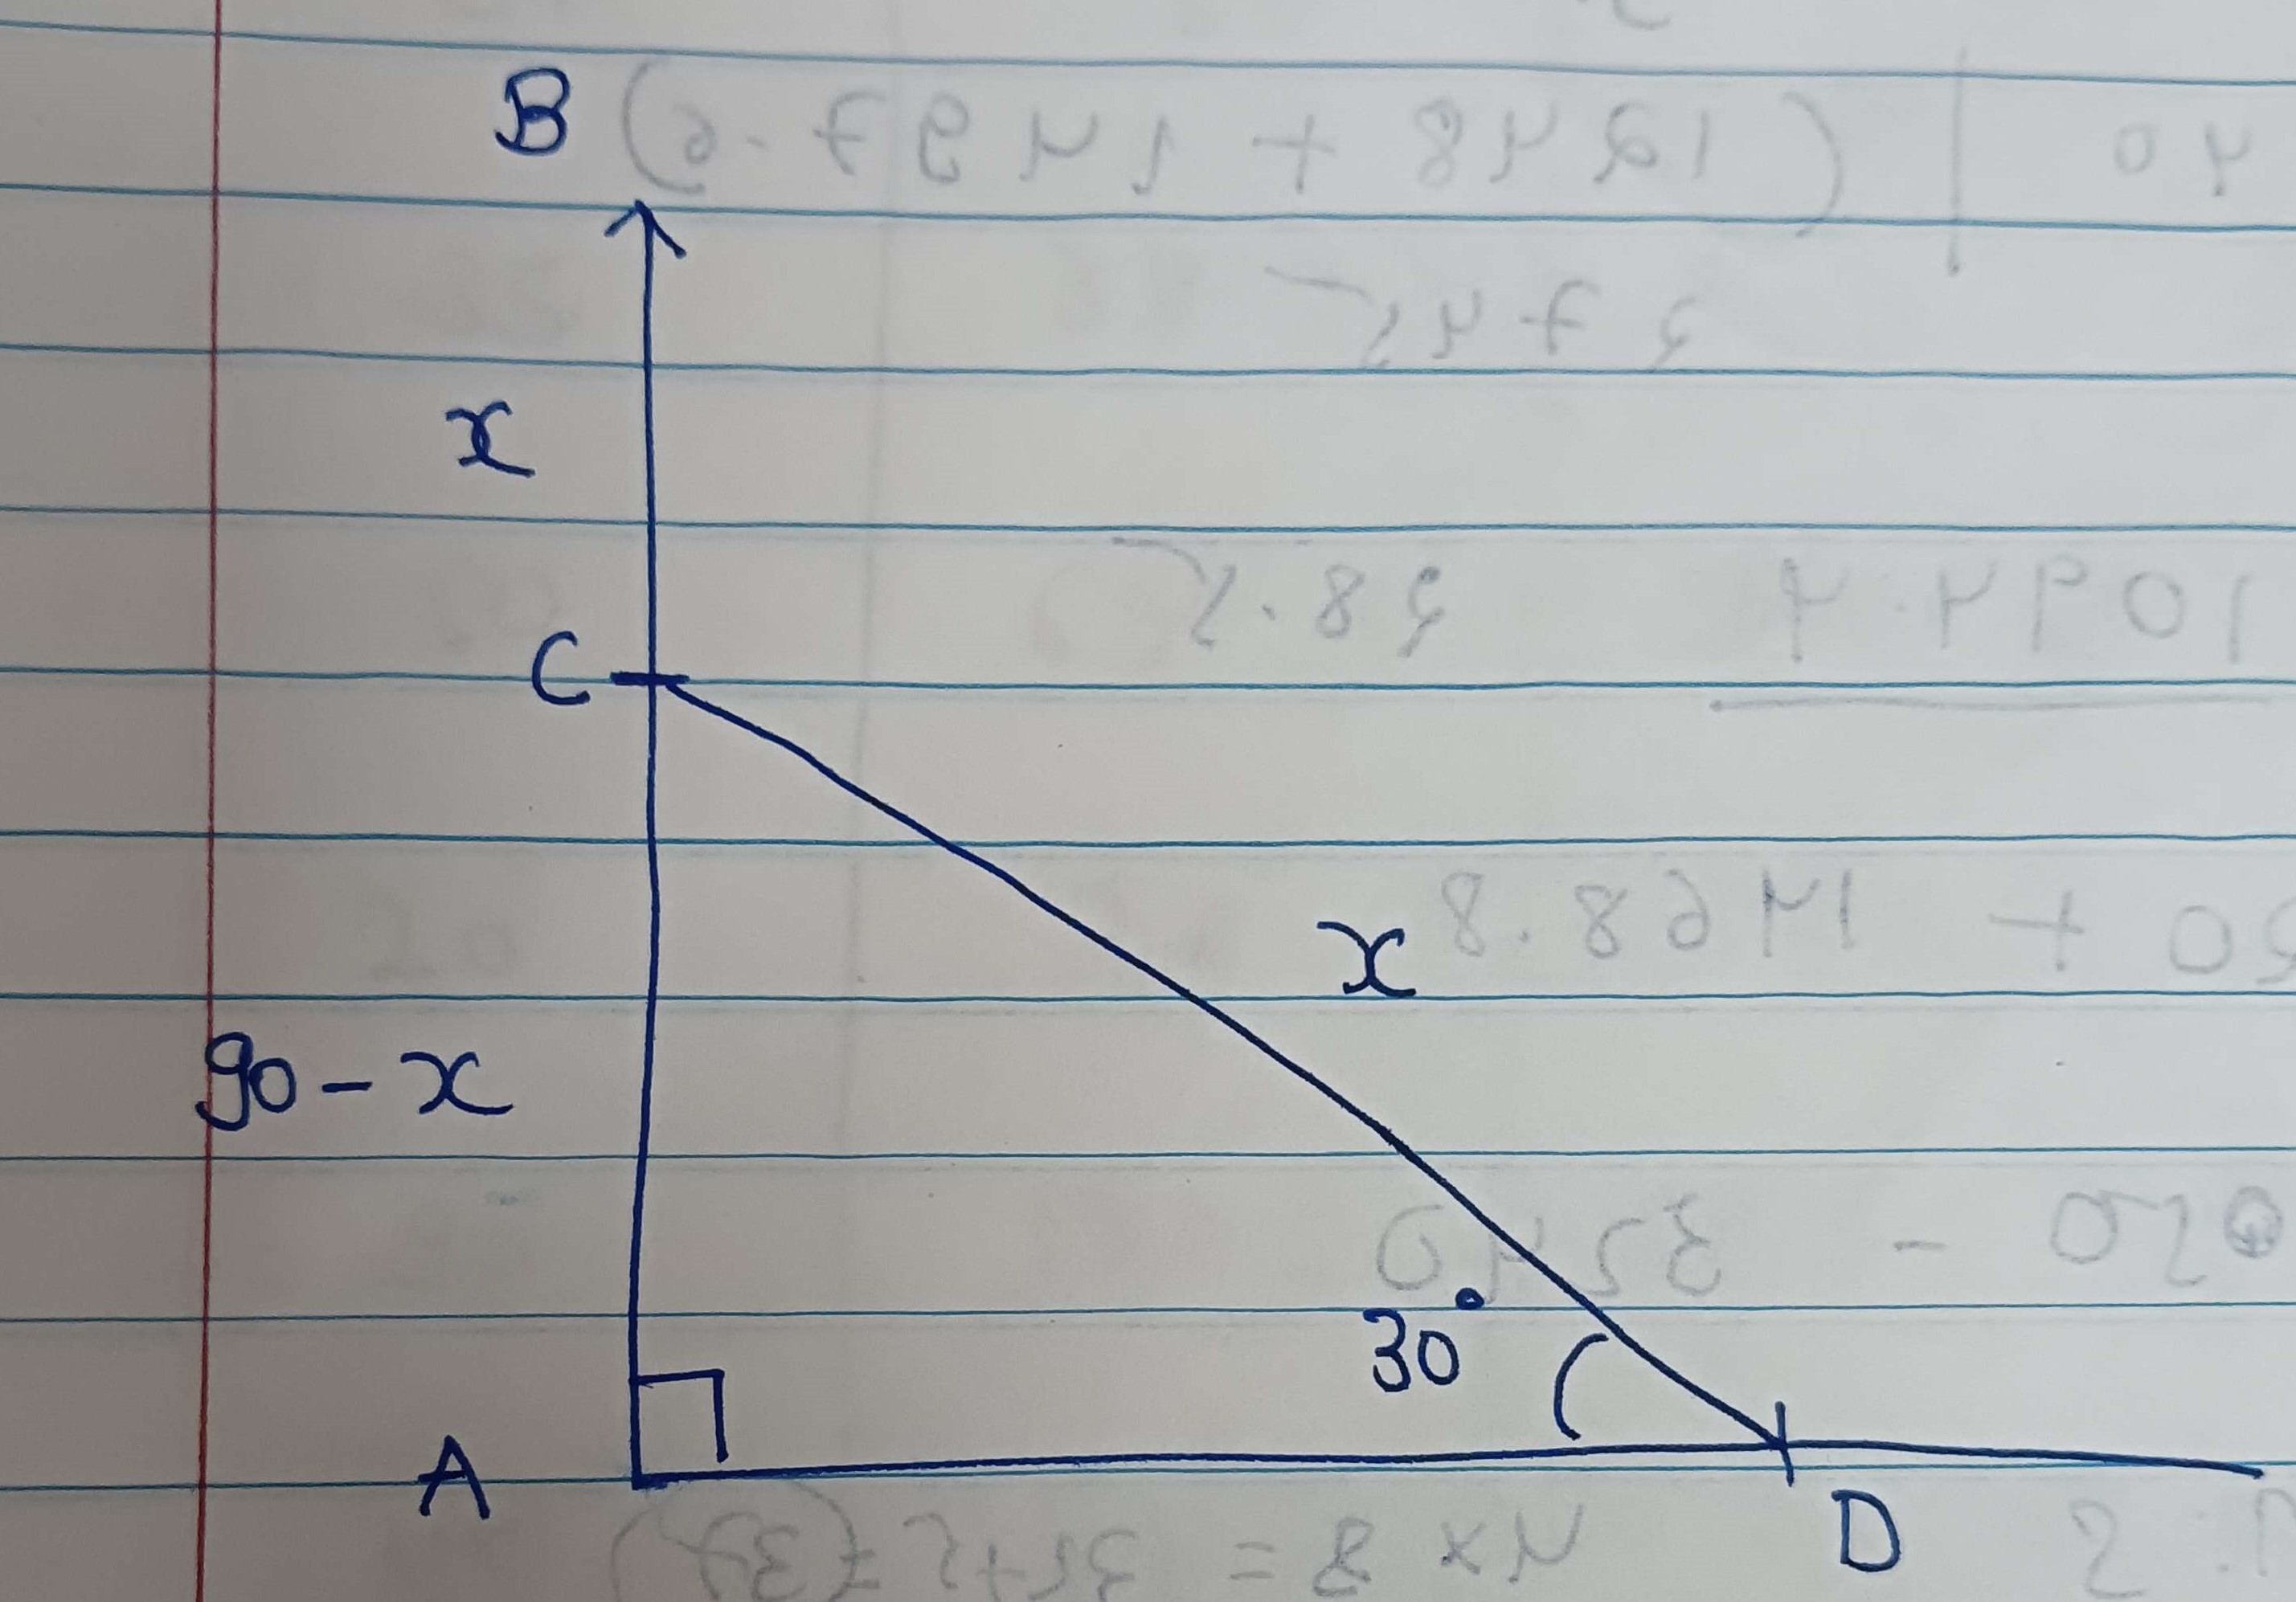 B
x
C
x
90 - x
30°
A
D